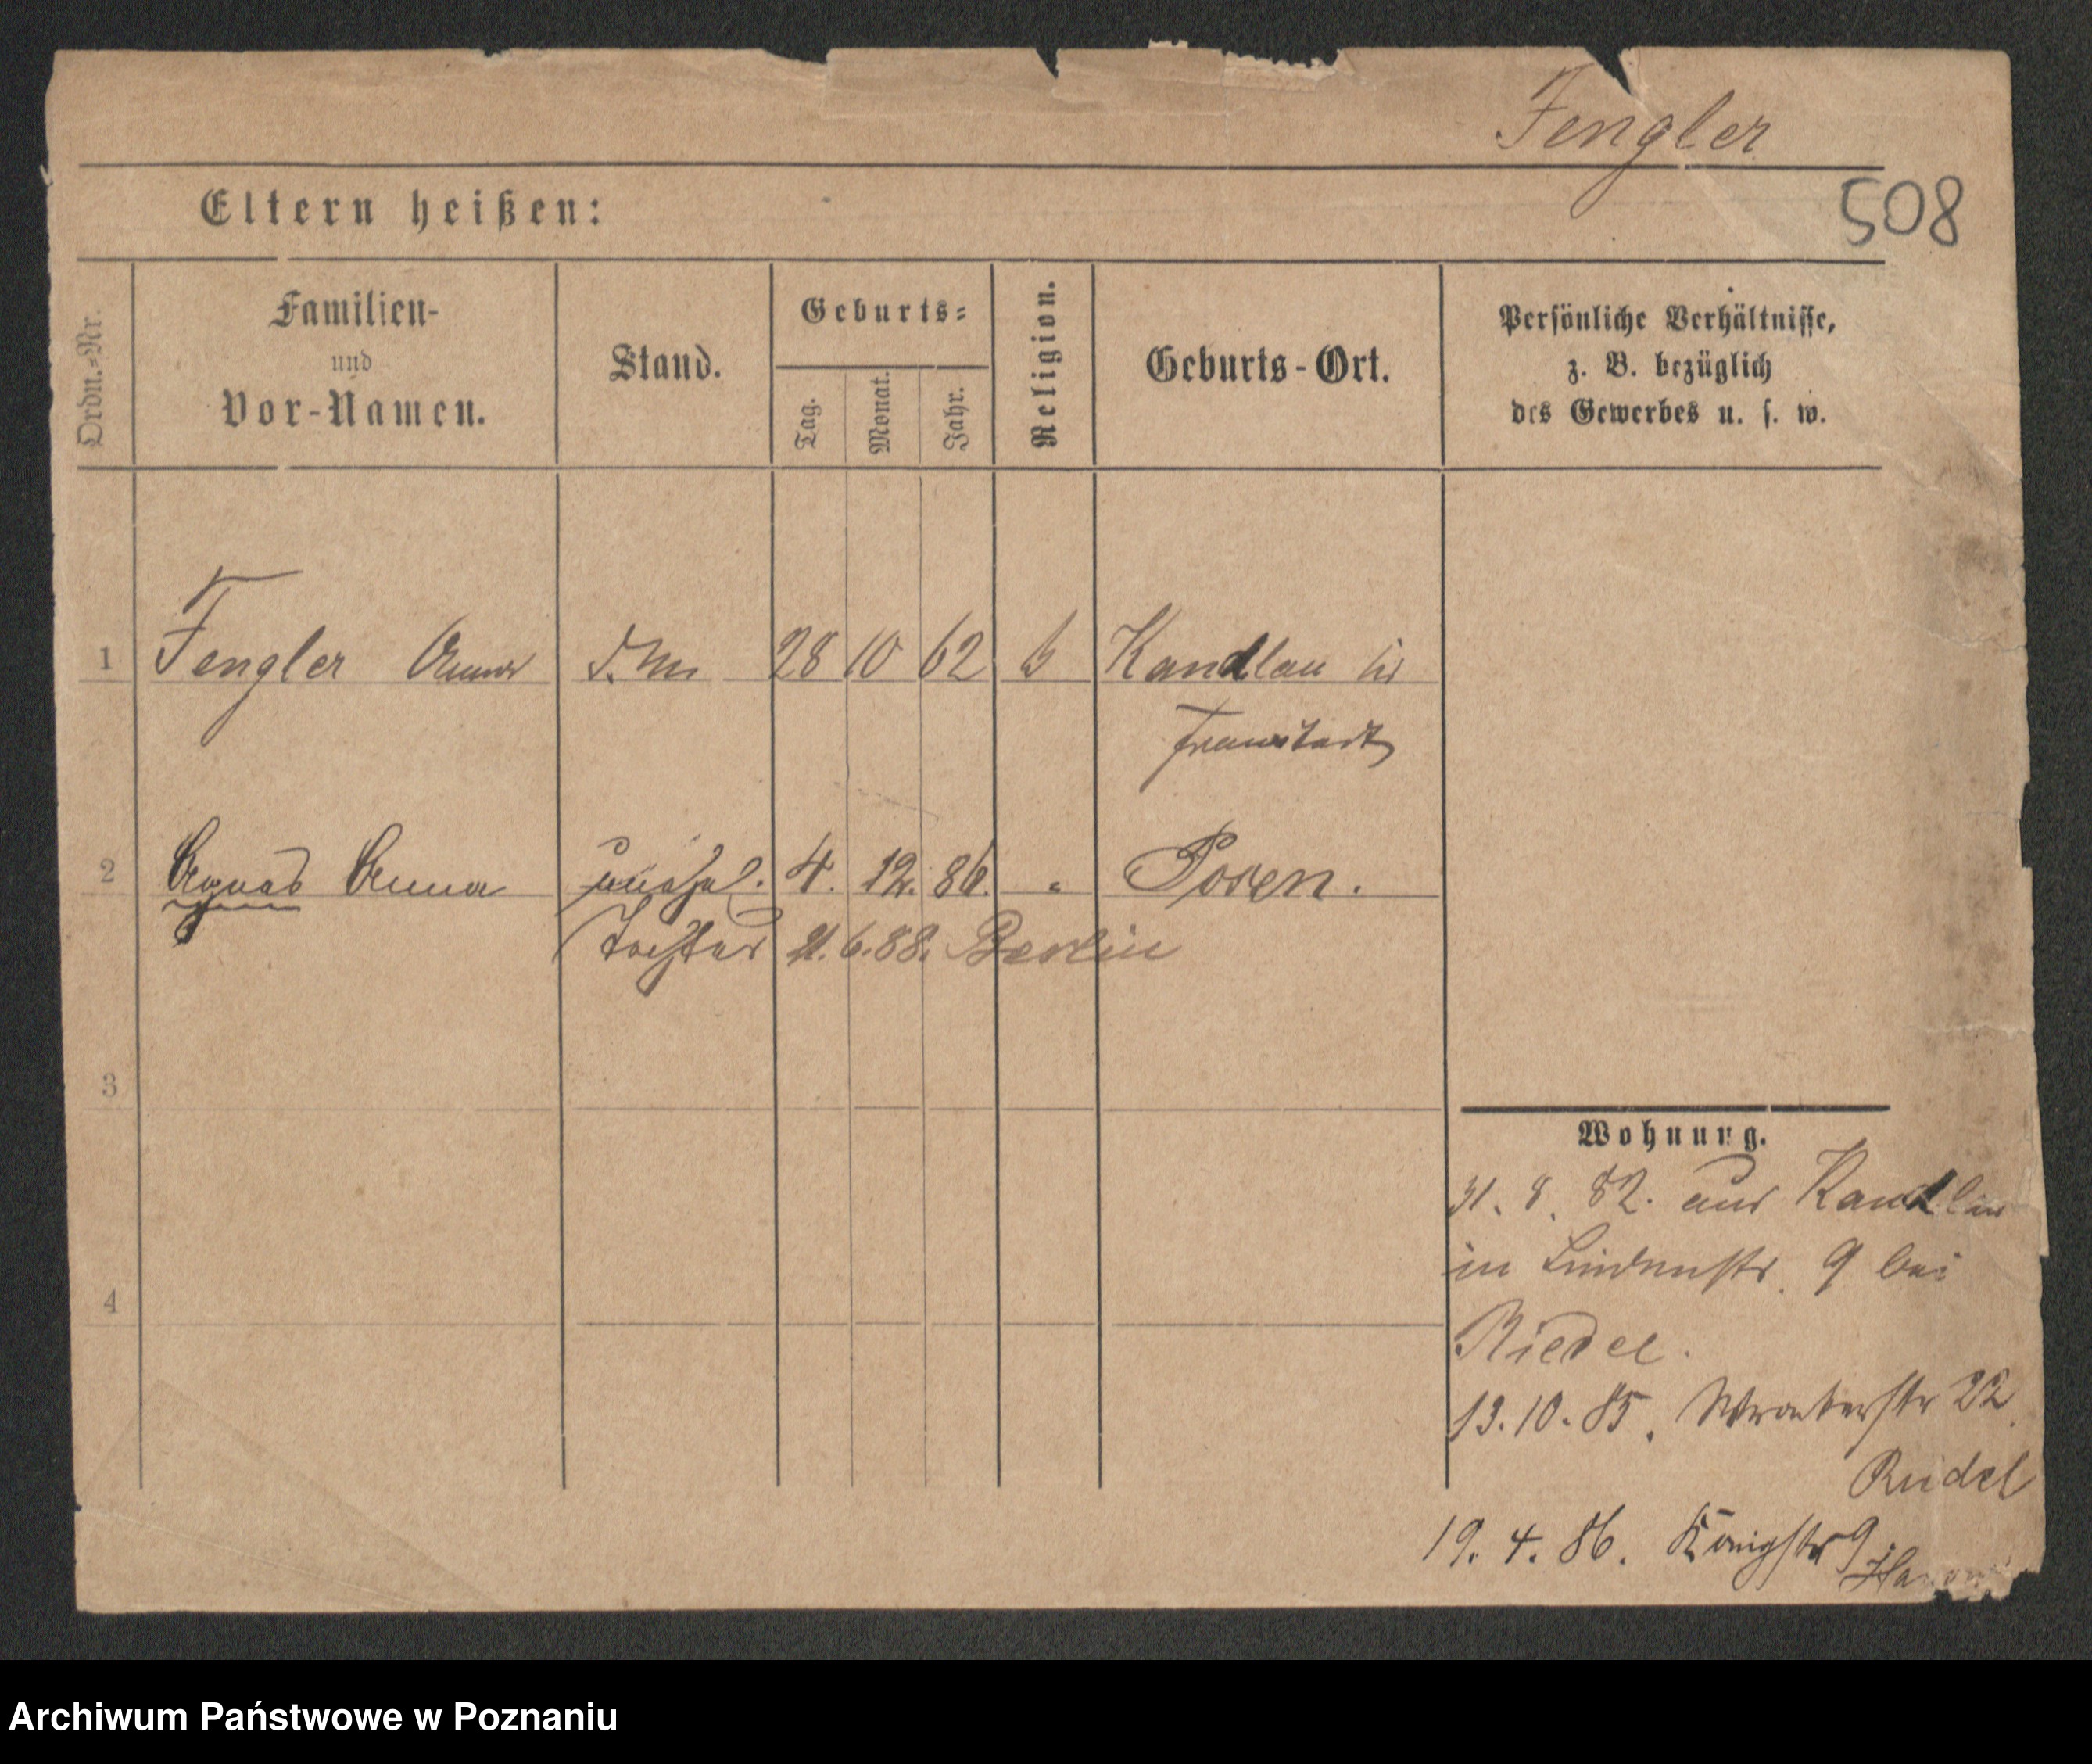 Fengler
508
Eltern heißen:
Ordn.-Nr.
Familien-
und
Vor-Namen.
Stand.
Geburts-
Tag.
Monat.
Jahr.
Religion.
Geburts-Ort.
Persönliche Verhältnisse,
z. B. bezüglich
des Gewerbes u. s. w.
1 Fengler Anna 28 10 62 Kandlau
Fraustadt
2 Agnes Anna unehel. 4. 12. 86. " Posen.
Tochter 21.6.88. Berlin
3
4
Wohnung.
31. 8. 82. aus Kandlau
in Lindenstr. 9 bei
Riedel.
13. 10. 85. Wronkerstr 22.
Riedel
19. 4. 86. Königstr 9
Archiwum Państwowe w Poznaniu